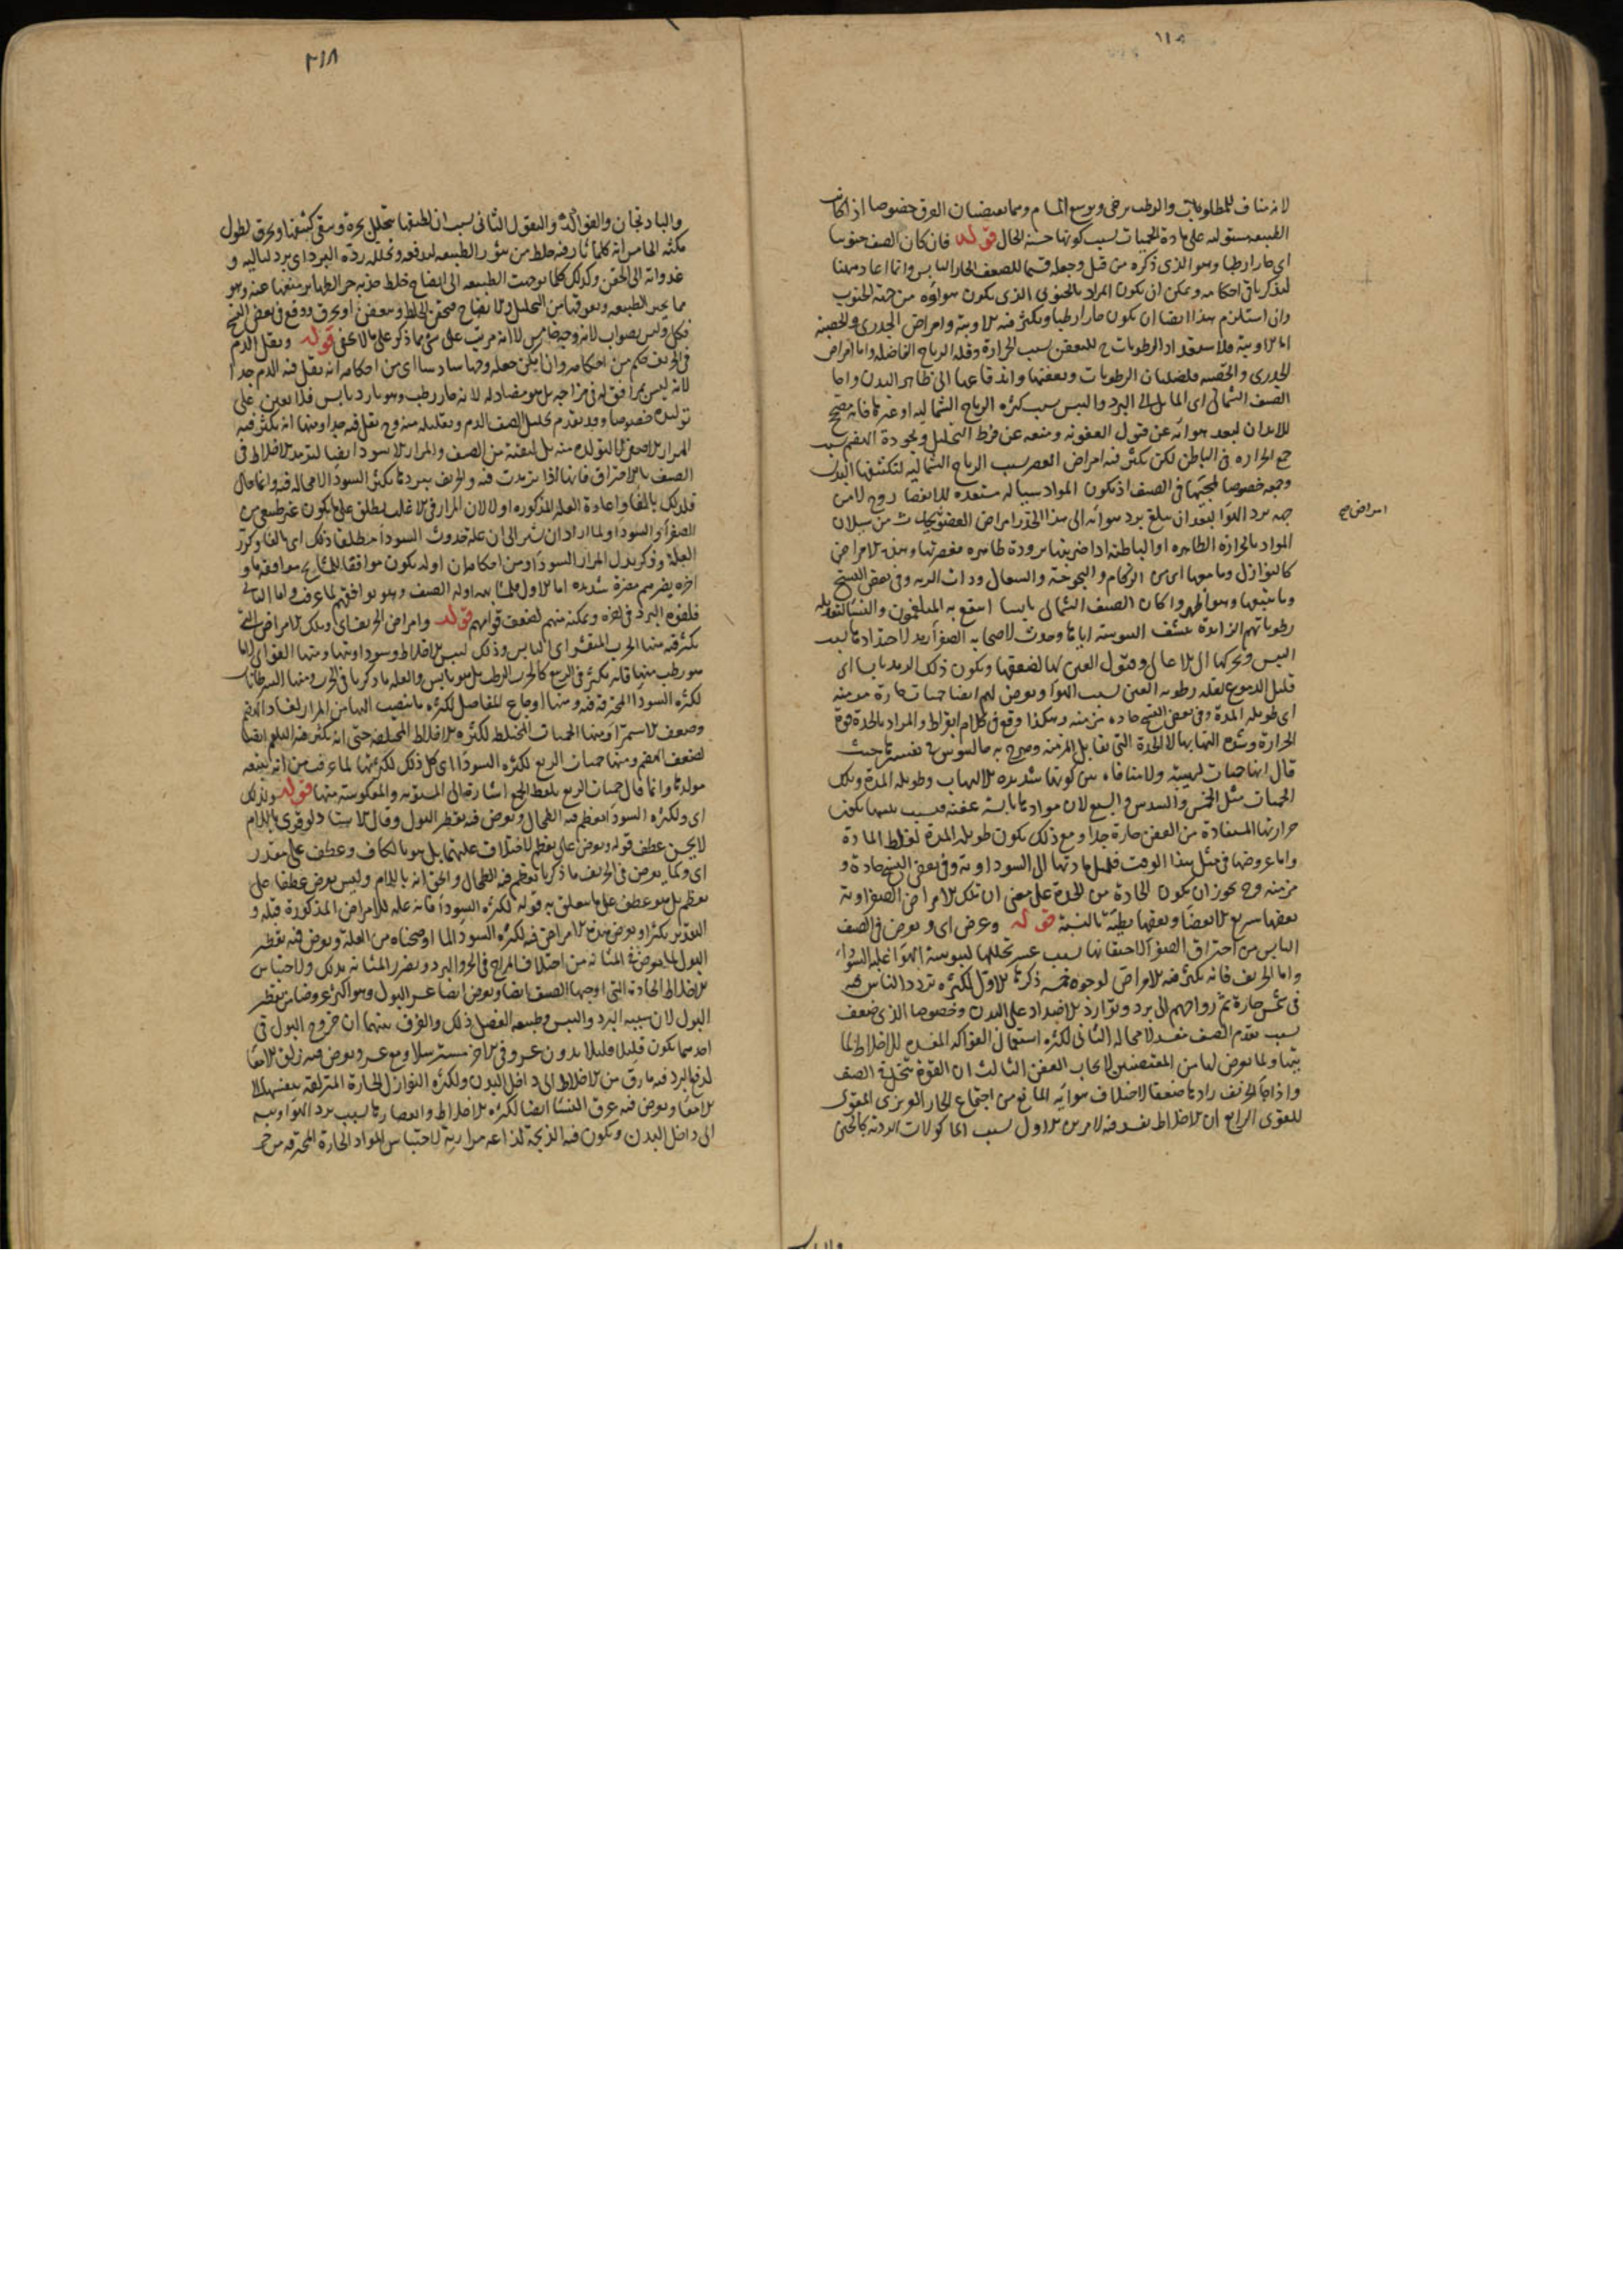 ١١٨
لانه مناف للمطلوبات والرطب يرخى ويوسع المسام ومما يعضان العرق خصوصا اذا كانت
الطبيعة مستولية على مادة الحميات بسبب كونها حسنة الحال قوله فان كان الصيف جنوبيا
اى حارا رطبا وهو الذى ذكره من قبل وجعله قسما للصيف الحار اليابس وانما اعاد ههنا
ليذكر باقى احكامه ويمكن ان يكون المراد بالجنوبى الذى يكون هواؤه من جهة الجنوب
وان استلزم هذا ايضا ان يكون حارا رطبا ويكثر فيه الاوبية وامراض الجدرى والحصبة
اما الاوبية فلاستعداد الرطوبات ح للتعفن بسبب الحرارة وقلة الرياح الفاضلة واما امراض
الجدرى والحصبة فلغليان الرطوبات وتعفنها واندفاعها الى ظاهر البدن واما
الصيف الشمالى اى المايل الى البرد واليبس بسبب كثرة الرياح الشمالية او غيرها فانه مصح
للابدان لبعد هوائه عن قبول العفونة ومنعه عن فرط التحليل ولجودة الهضم بسبب
جمع الحرارة فى الباطن لكن يكثر فيه امراض العصر بسبب الرياح الشمالية لتكثيفها البدن
وجمعه خصوصا لمجيئها فى الصيف اذ يكون المواد سيالة مستعدة للانعصار وح لا من
جهة برد الهوا لبعد ان يبلغ برد هوائه الى هذا الحد وامراض العصر يحدث من سيلان
امراض صح
المواد بالحرارة الظاهرة او الباطنة اذا ضربتها برودة ظاهرة فعصرتها وهذه الامراض
كالنوازل وما معها اى من الزكام والبحوحة والسعال وذات الرية وفى بعض النسخ
وما يتبعها وهو اظهر وان كان الصيف الشمالى يابسا انتفع به المبلغمون والنساء لتعديله
رطوباتهم الزائدة بنشف اليبوسة اياها وحدث لاصحاب الصفراء رمد لاحتدادها بسبب
اليبس وتحركها الى الاعالى وقبول العين لها لضعفها ويكون ذلك الرمد يابسا اى
قليل الدموع لقلة رطوبة العين بسبب الهوا ويعرض لهم ايضا حميات حارة مزمنة
اى طويلة المدة وفى بعض النسخ حادة مزمنة وهكذا وقع فى كلام ابقراط والمراد بالحدة قوة
الحرارة وشدة التهابها لا الحدة التى تقابل المزمنة وصرح به جالينوس فى تفسيرها حيث
قال انها حميات لهيبية ولا منافاة بين كونها شديدة الالتهاب وطويلة المدة وتلك
الحميات مثل الخمس والسدس والسبع لان موادها يابسة عفنة فبسبب يبسها تكون
حرارتها المستفادة من العفن حارة جدا ومع ذلك يكون طويلة المدة لغلظ المادة
واما عروضها فى مثل هذا الوقت فلميل مادتها الى السوداوية وفى بعض النسخ حادة و
مزمنة وح يجوز ان يكون الحادة من الحدة على معنى ان تلك الامراض الصفراوية
بعضها سريع الانقضا وبعضها بطيئة بالنسبة قوله وعرض اى ويعرض فى الصيف
اليابس من احتراق الصفراء لاحتقانها بسبب عسر تحللها ليبوسة الهوا غلبة السوداء
واما الخريف فانه يكثر فيه الامراض لوجوه خمسة ذكرها الاول لكثرة تردد الناس فيه
فى شمس حارة ثم رواحهم الى برد وتوارد الاضداد على البدن وخصوصا الذى ضعف
بسبب تقدم الصيف مفسد لا محالة الثانى لكثرة استعمال الفواكه المفسدة للاخلاط لما
يتبها ولما يعرض لها من المقتضيين لايجاب العفن الثالث ان القوة تتخلخل الصيف
واذا جاء الخريف زادها ضعفا لاختلاف هوائه المانع من اجتماع الحار الغريزى المقوى
للقوى الرابع ان الاخلاط تفسد فيه لامرين الاول بسبب الماكولات الردية كالجبن
٣١٨
والباذنجان والفواكه والبقول الثانى بسبب ان لطيفها يتحلل بحره ويبقى كثيفها ويحرق لطول
مكثه الخامس انه كلما ثار فيه خلط من تثوير الطبيعة لدفعه وتحلله رده البرد اى برد لياليه و
غدواته الى الحقن وكذلك كلما توجهت الطبيعة الى انضاج خلط جذبه حر الظهاير منعها عنه وهو
مما يحير الطبيعة ويعوقها من التحليل والانضاج فيحتقن الخلط ويتعفن او يحرق ووقع فى بعض النسخ
فكل وليس بصواب لانه وجه خامس لا انه مرتب على شى مما ذكر على ما لا يخفى قوله ويقل الدم
فى الخريف حكم من احكامه وان امكن جعله وجها سادسا اى من احكامه انه يقل فيه الدم جدا
لانه ليس بموافق له فى مزاجه بل هو مضاد له لانه حار رطب وهو بارد يابس فلا يعين على
توليده خصوصا وقد تقدم تحليل الصيف الدم وتقليله منه وح يقل فيه جدا ومنها انه يكثر فيه
المرار الاصفر لا لتولده منه بل لبقيته من الصيف والمرار الاسود ايضا لترمد الاخلاط فى
الصيف بالاحتراق فانها اذا ترمدت فيه والخريف يبردها يكثر السودا لا محالة فيه وانما قال
فلذلك بالفا واعادة العلة المذكورة اولا لان المرار فى الاغلب يطلق على ما يكون غير طبيعى من
الصفراء والسوداء ولما اراد ان يشير الى ان علة حدوث السودا مطلقا ذلك اى بالفا وكرر
العلة وذكر بدل المرار السودا ومن احكامه ان اوله يكون موافقا للمشايخ موافقة ما و
آخره يضرهم مضرة شديدة اما الاول فلمشابهة اوله الصيف وهو يوافقهم لما عرفت واما الثانى
فلقوة البرد فى آخره وتمكنه منهم لضعف قواهم قوله وامراض الخريف اى وتلك الامراض التى
يكثر فيه منها الجرب المتقشر اى اليابس وذلك ليبس الاخلاط وسوداويتها ومنها القوابى لانها
هو رطب منها فانه يكثر فى الربيع كالجرب الرطب بل هو يابس والعلة ما ذكرنا فى الجرب ومنها السرطانات
لكثرة السودا المحترقة فيه ومنها اوجاع المفاصل لكثرة ما ينصب اليها من المرار لفساد الهضم
وضعف الاستمرا ومنها الحميات المختلطة لكثرة الاخلاط المختلفة حتى انه يكثر فيه البلغم ايضا
لضعف الهضم ومنها حميات الربع لكثرة السودا اى كل ذلك لكثرتها لما عرفت من انه يتبعه
مولدها وانما قال حميات الربع بلفظ الجمع اشارة الى المستوية والمعكوسة منها قوله ولذلك
اى ولكثرة السودا يعظم فيه الطحال ويعرض فيه تقطير البول وقال الاستاذ ولو قرئ باللام
لا يحسن عطف قوله ويعرض على يعظم لاختلاف علتيهما بل هو بالكاف وعطف على مقدر
اى وكما يعرض فى الخريف ما ذكرنا يعظم فيه الطحال والحق انه باللام وليس يعرض عطفا على
يعظم بل هو عطف على ما يتعلق به قوله لكثرة السودا فانه علة للامراض المذكورة قبله و
التقدير يكثر او يعرض هذه الامراض فيه لكثرة السودا لما اوضحناه من العلة ويعرض فيه تقطير
البول لما يعرض فى المثانة من اختلاف المزاج فى الحر والبرد وتضرر المثانة بذلك ولاحتباس
الاخلاط الحادة التى اوجبها الصيف ايضا ويعرض ايضا عسر البول وهو اكثر عروضا من تقطير
البول لان سببه البرد واليبس وطبيعة الفصل ذلك والفرق بينهما ان خروج البول فى
احدهما يكون قليلا قليلا بدون عسر وفى الاخر مسترسلا ومع عسر ويعرض فيه زلق الامعاء
لدفع البرد فيه ما رق من الاخلاط الى داخل البدن ولكثرة النوازل الحارة المنزلقة بنفسها الى
الامعاء ويعرض فيه عرق النساء ايضا لكثرة الاخلاط وانعصارها بسبب برد الهوا ويبسه
الى داخل البدن ويكون فيه الذبحة لذاعة مرارية لاحتباس المواد الحارة المحترقة من حر